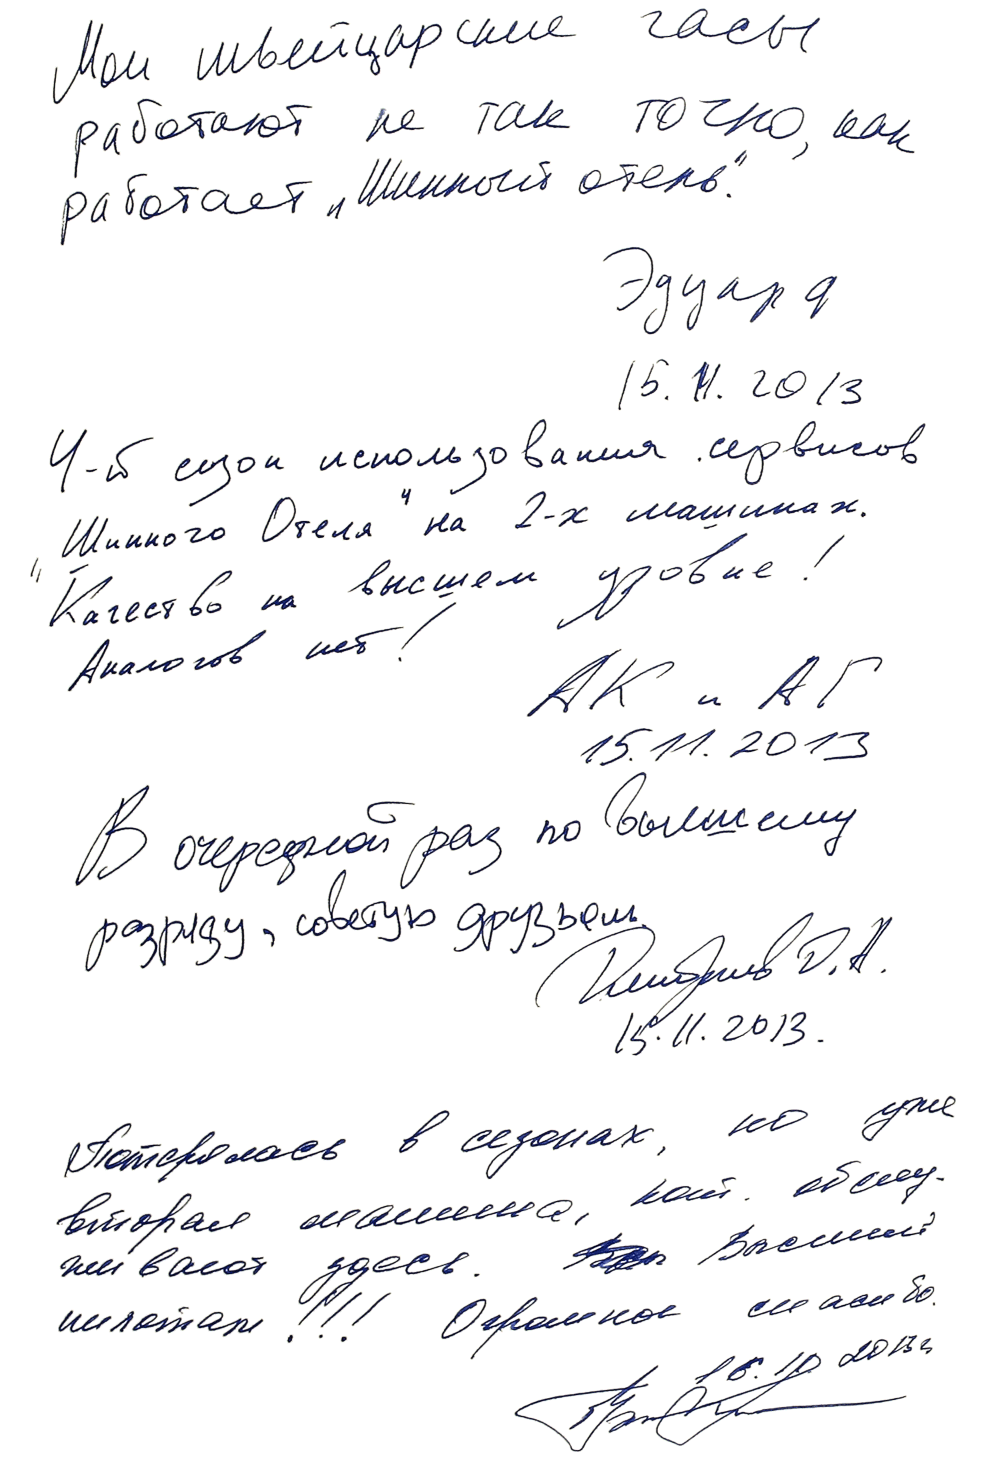 Мои швейцарские часы
работают не так точно, как
работает „Шинный отель".
Эдуард
15.11.2013
4-й сезон использования сервисов
„Шинного Отеля" на 2-х машинах.
Качество на высшем уровне!
Аналогов нет!
АК и АГ
15.11.2013
В очередной раз по высшему
разряду, советую друзьям.
Д.А.
15.11.2013.
Потерялась в сезонах, но уже
вторая машина, кот. обслу-
живают здесь. Высший
пилотаж!!! Огромное спасибо.
16.10 2013г